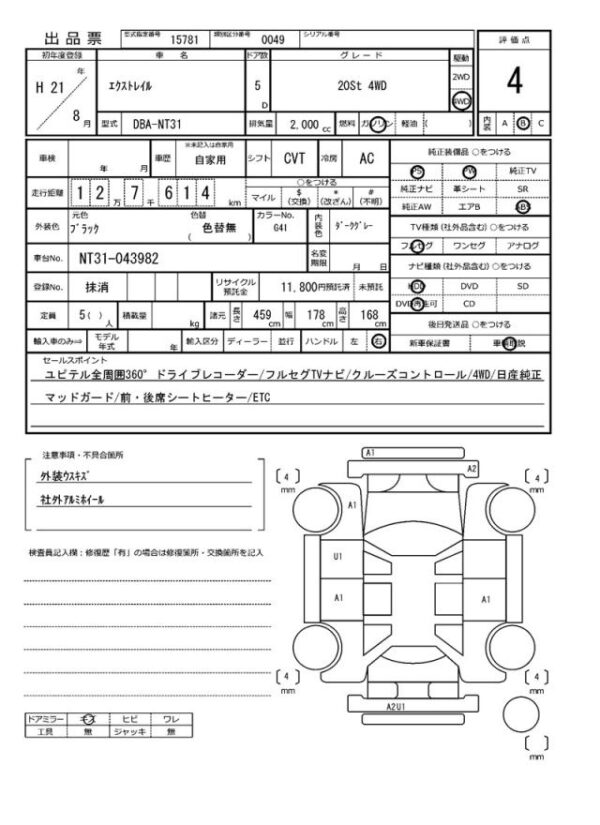 出品票 型式指定番号 15781 類別区分番号 0049 シリアル番号
初年度登録 車名 ドア数 グレード 駆動 評価点
H 21 年 8 月 エクストレイル 5 D 20St 4WD 2WD 4WD 4
型式 DBA-NT31 排気量 2,000 cc 燃料 ガソリン 軽油 ( ) 内装 A B C
車検 年 月 車歴 ※未記入は自家用 自家用 シフト CVT 冷房 AC 純正装備品 ○をつける
PS PW 純正TV
走行距離 1 2 万 7 千 6 1 4 km ○をつける マイル $ (交換) * (改ざん) # (不明) 純正ナビ 革シート SR
純正AW エアB ABS
外装色 元色 ブラック 色替 ( 色替無 ) カラーNo. G41 内装色 ダークグレー TV種類 (社外品含む) ○をつける
フルセグ ワンセグ アナログ
車台No. NT31-043982 名変期限 月 日 ナビ種類 (社外品含む) ○をつける
登録No. 抹消 リサイクル預託金 11,800円預託済 未預託 HDD DVD SD
DVD再生可 CD
定員 5 ( ) 人 積載量 kg 諸元 長さ 459 cm 幅 178 cm 高さ 168 cm 後日発送品 ○をつける
輸入車のみ⇒ モデル年式 年 輸入区分 ディーラー 並行 ハンドル 左 右 新車保証書 車輌取説
セールスポイント
ユピテル全周囲360° ドライブレコーダー/フルセグTVナビ/クルーズコントロール/4WD/日産純正
マッドガード/前・後席シートヒーター/ETC
注意事項・不具合箇所
外装ウスキズ
社外アルミホイール
検査員記入欄：修復歴「有」の場合は修復箇所・交換箇所を記入
ドアミラー キズ ヒビ ワレ
工具 無 ジャッキ 無
A1
A2
4 mm A1 4 mm
U1
A1 A1
4 mm 4 mm
A2U1
mm